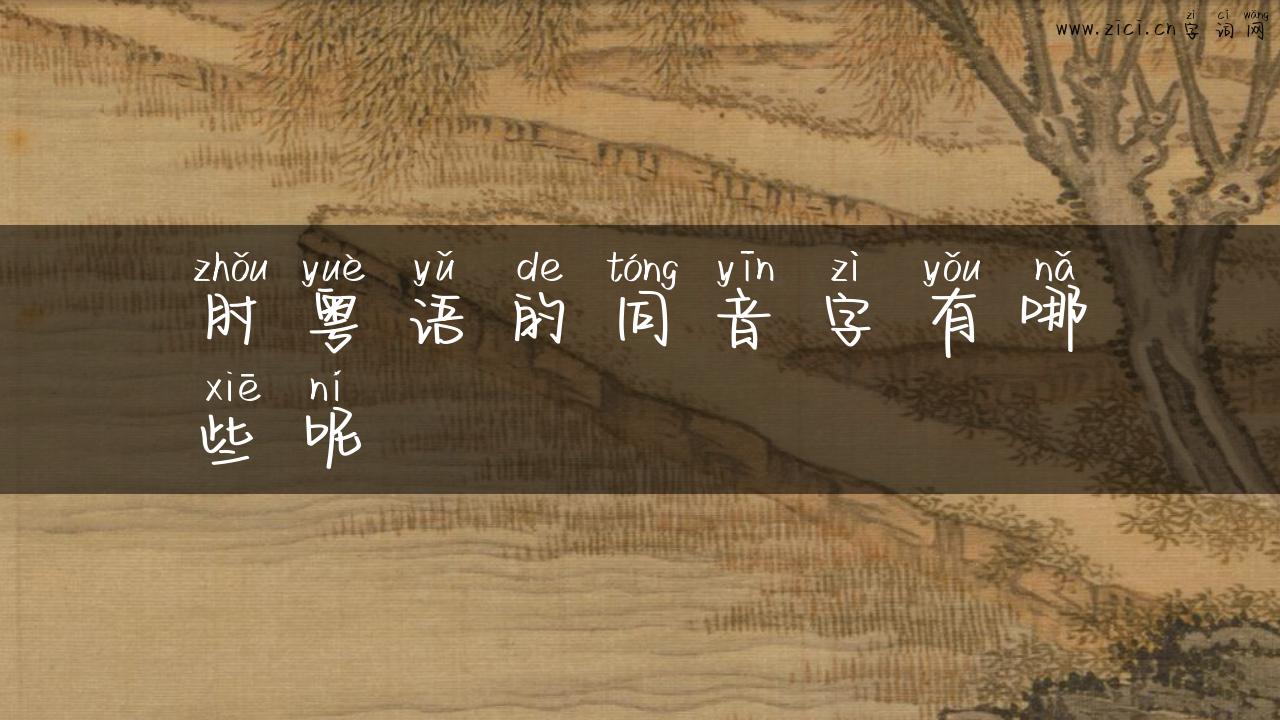 zì cí wǎng
www.zici.cn字词网
zhǒu yuè yǔ de tóng yīn zì yǒu nǎ
肘粤语的同音字有哪
xiē ní
些呢